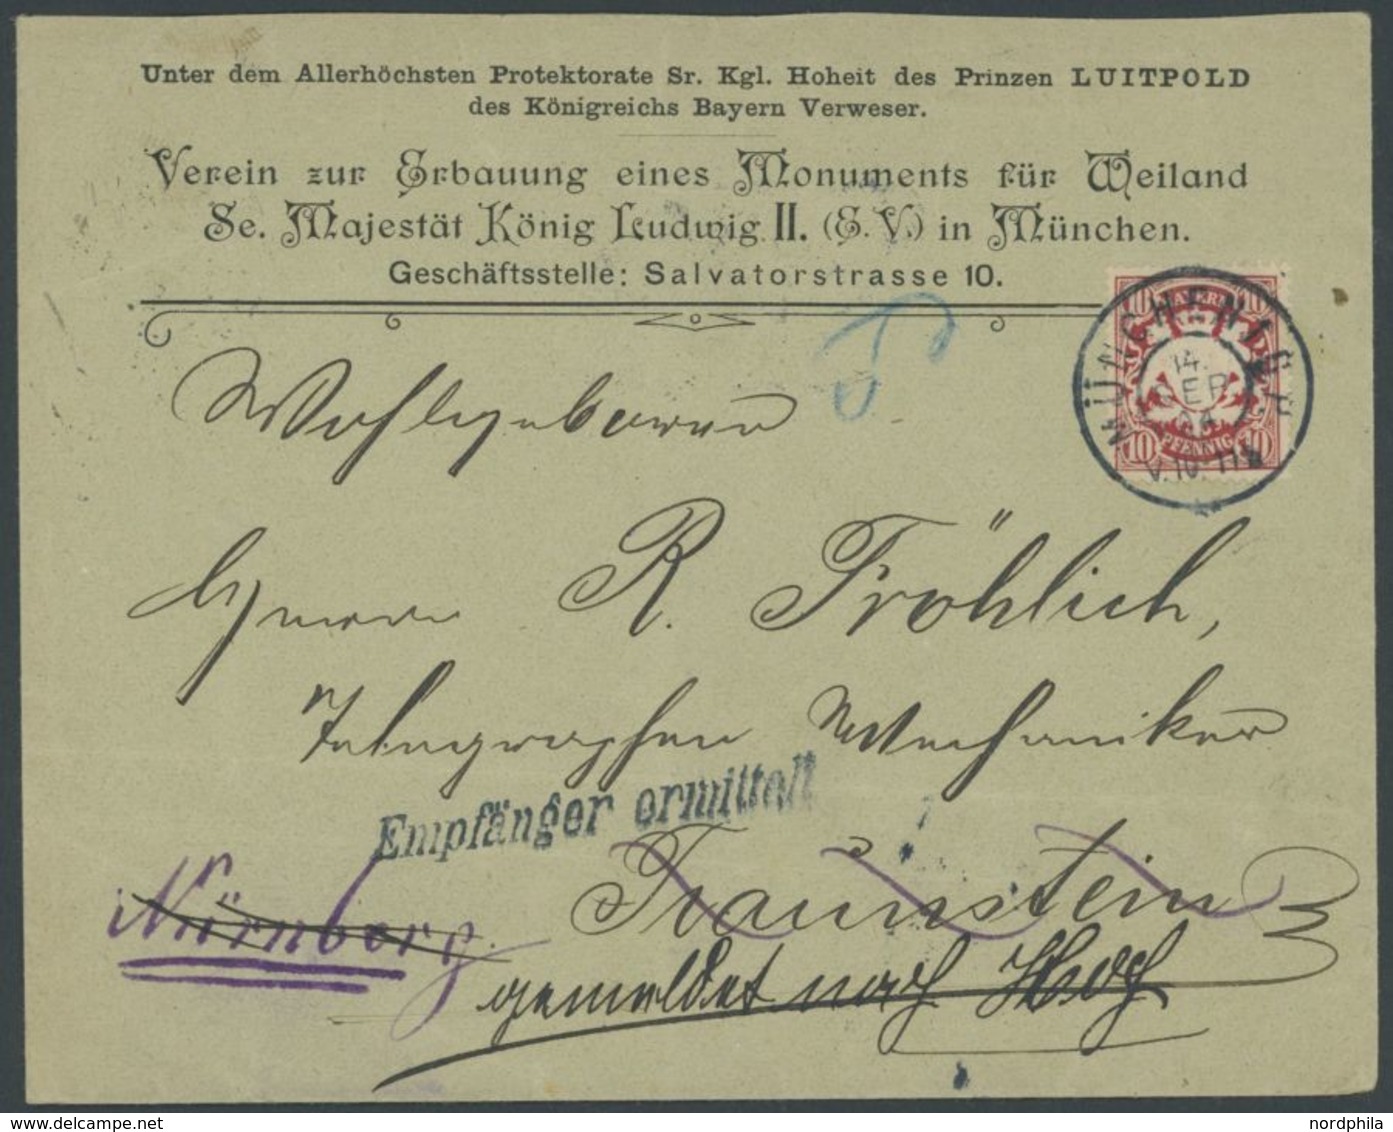 Unter dem Allerhöchsten Protektorate Sr. Kgl. Hoheit des Prinzen LUITPOLD
des Königreichs Bayern Verweser.
Verein zur Erbauung eines Monuments für Weiland
Se. Majestät König Ludwig II. (E.V.) in München.
Geschäftsstelle: Salvatorstrasse 10.
BAYERN
10 PFENNIG 10
MÜNCHEN
14.
SEP.
V.10-11
Wohlgeboren
Herrn R. Fröhlich,
Telegraphen Mechaniker
Empfänger ermittelt
Traunstein
Nürnberg
gemeldet nach
nordphila